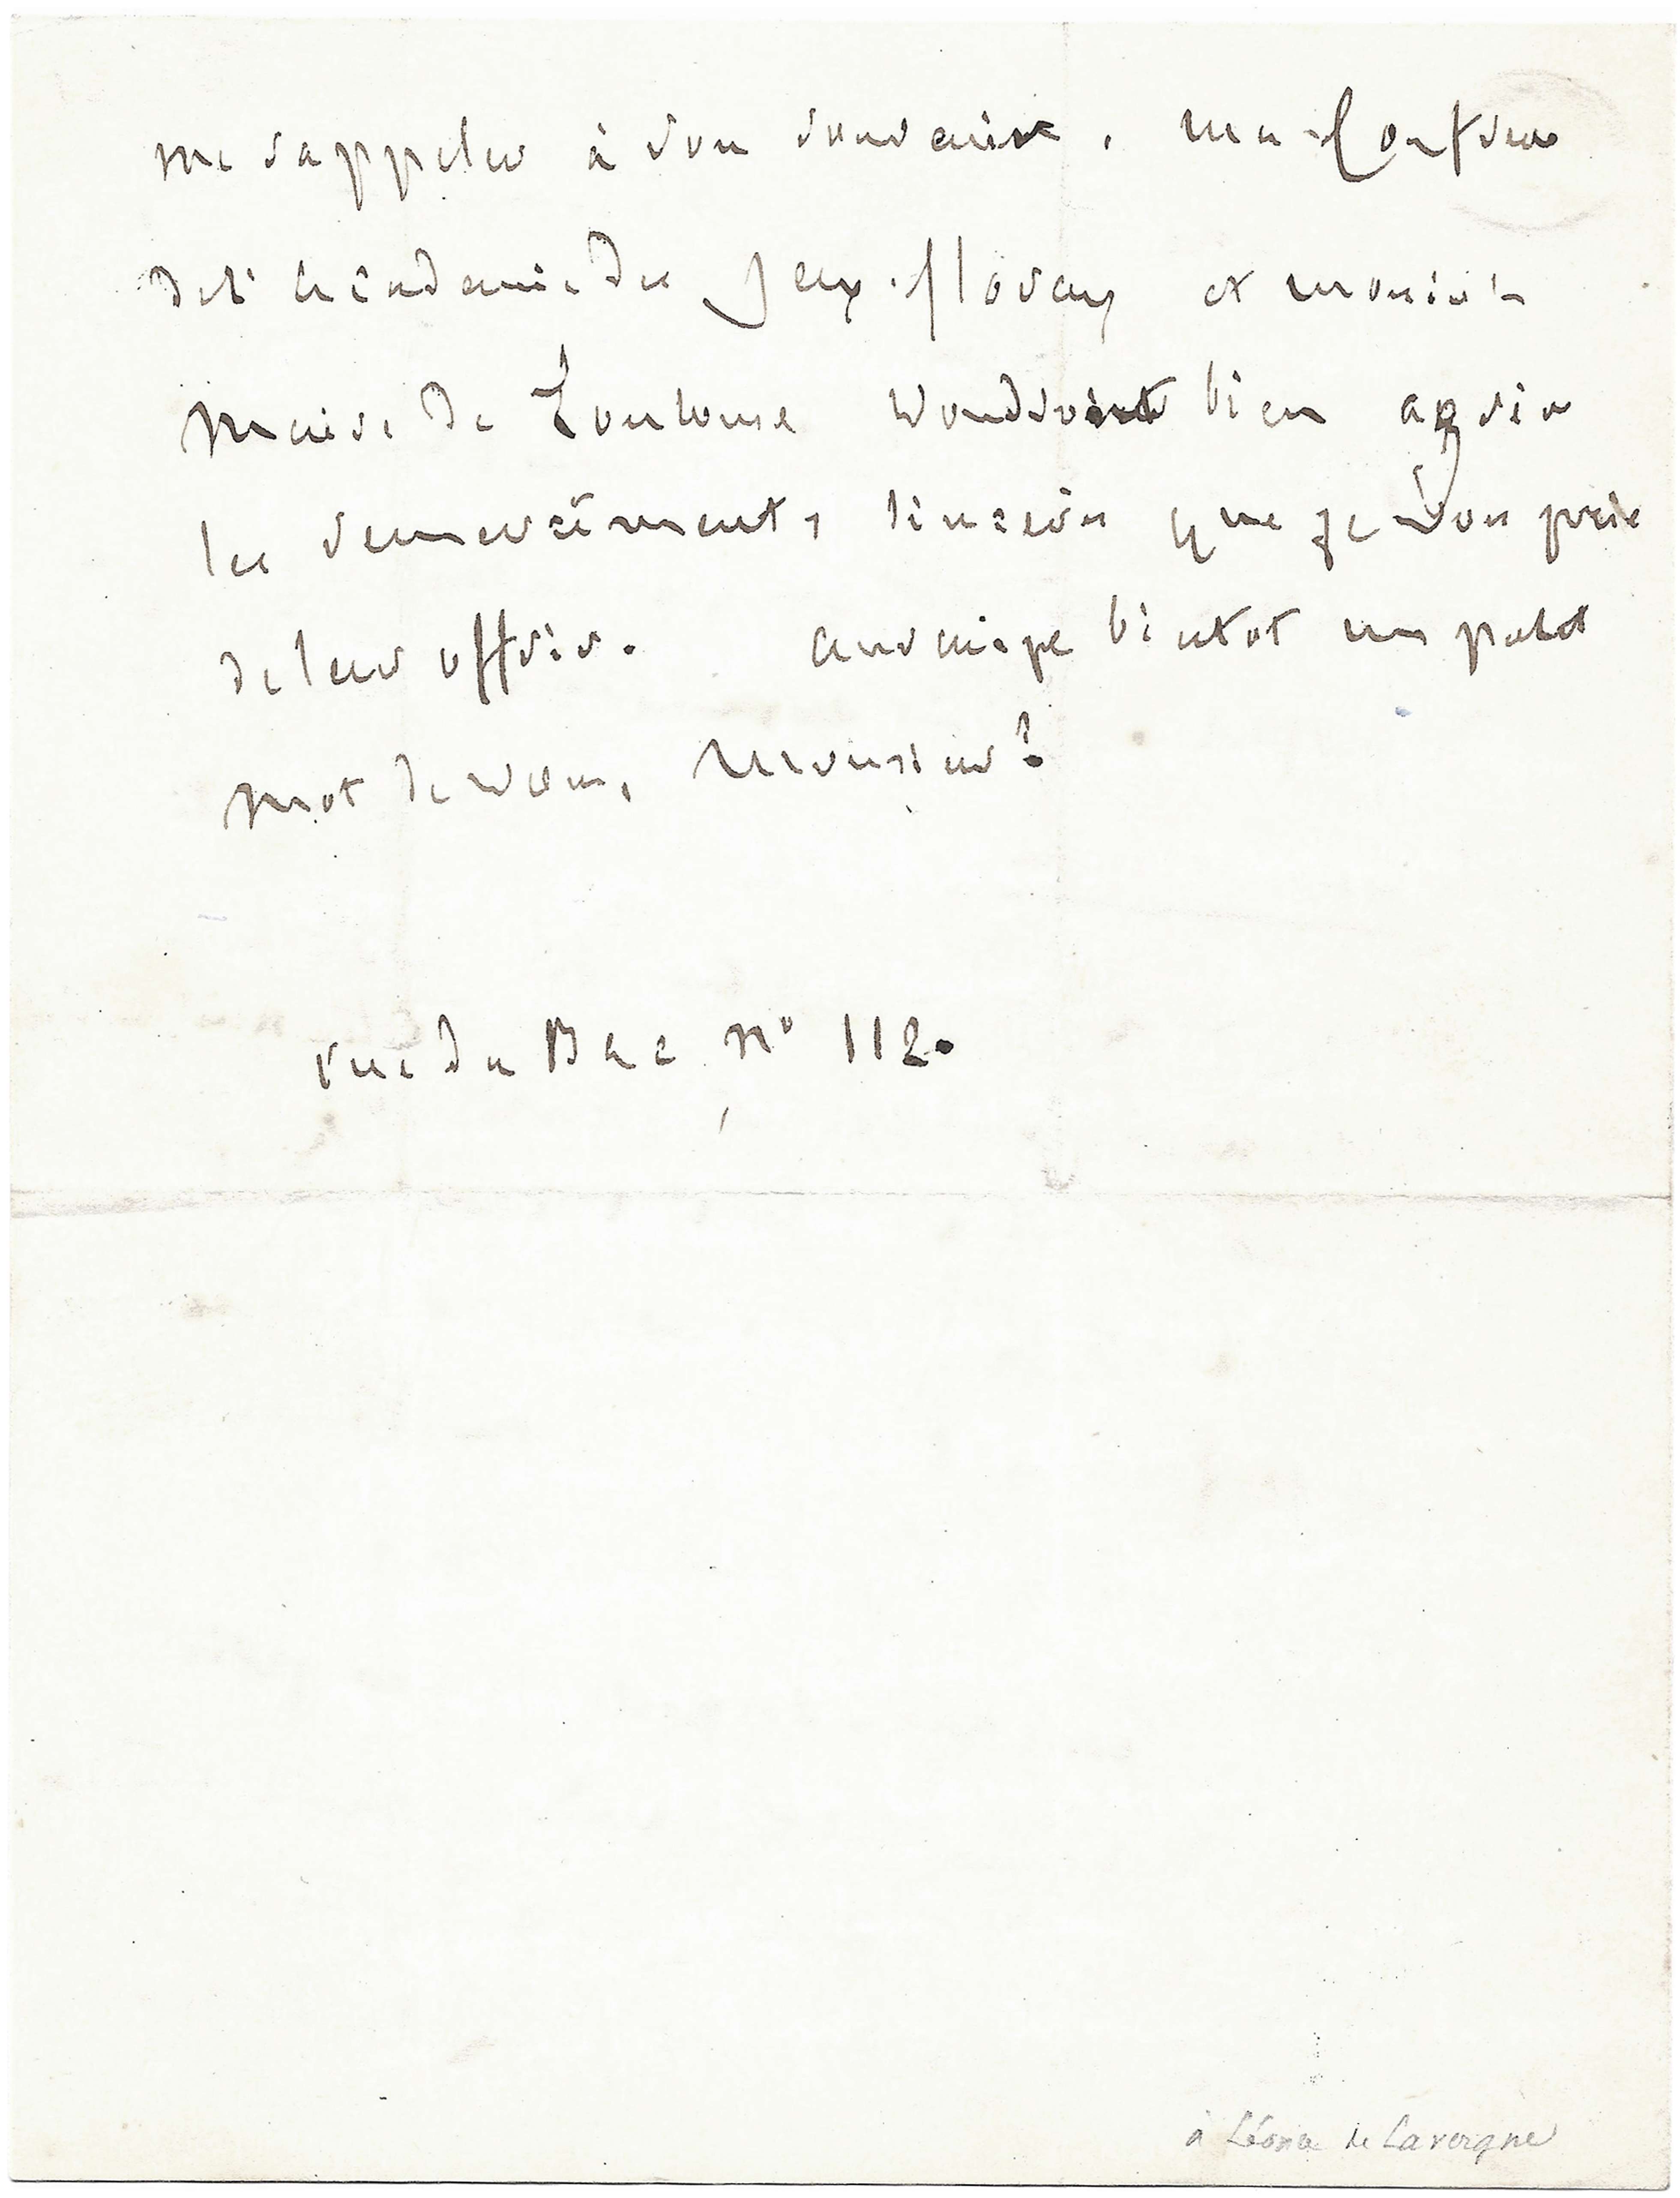 me rappeler à son souvenir. mes Confrères
de l'académie des Jeux-floraux et monsieur le
maire de Toulouse voudront bien agréer
les remerciments sincères que je vous prie
de leur offrir. aurai-je bientot un petit
mot de vous, Monsieur?
rue du Bac n° 112.
à Léonce de Lavergne